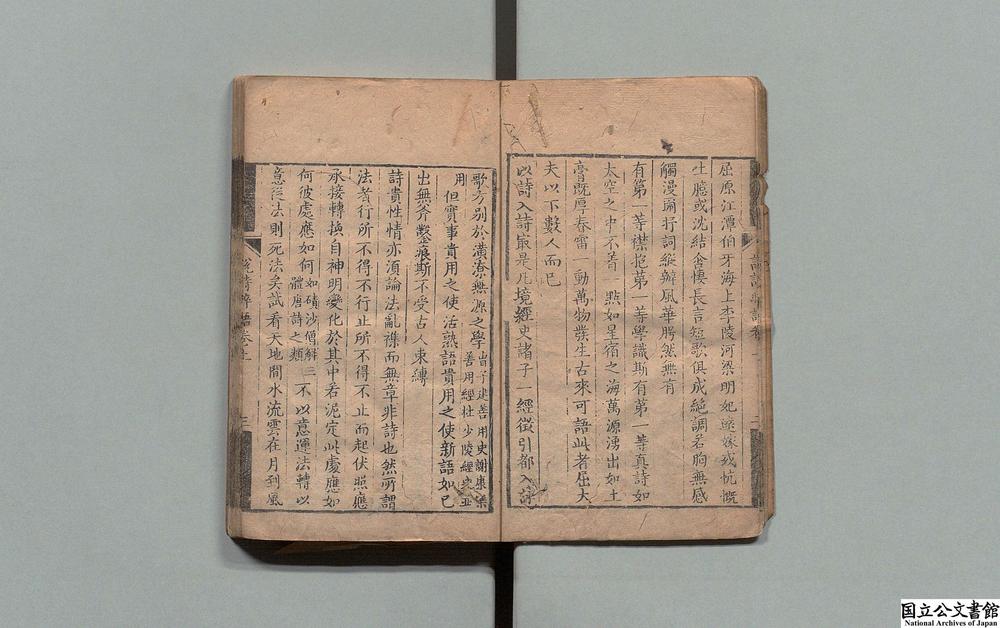 屈原江潭伯牙海上李陵河梁明妃遠嫁或忼慨
生臆或沈結含悽長言短歌俱成絕調若胸無感
觸漫爾抒詞縱辦風華膓然無有
有第一等襟抱第一等學識斯有第一等真詩如
太空之中不著一點如星宿之海萬源湧出如土
膏既厚春雷一動萬物發生古來可語此者屈大
夫以下數人而已
以詩入詩最是凡境經史諸子一經徵引都入詠
歌方别於潢潦無源之學曹子建善用史謝康樂善用經杜少陵經史並
用但實事貴用之使活熟語貴用之使新語如己
出無斧鑿痕斯不受古人束縛
詩貴性情亦須論法亂襍而無章非詩也然所謂
法者行所不得不行止所不得不止而起伏照應
承接轉換自神明變化於其中若泥定此處應如
何彼處應如何如磧沙僧解三體唐詩之類不以意運法轉以
意從法則死法矣試看天地間水流雲在月到風
說詩晬語卷上
三
国立公文書館
National Archives of Japan